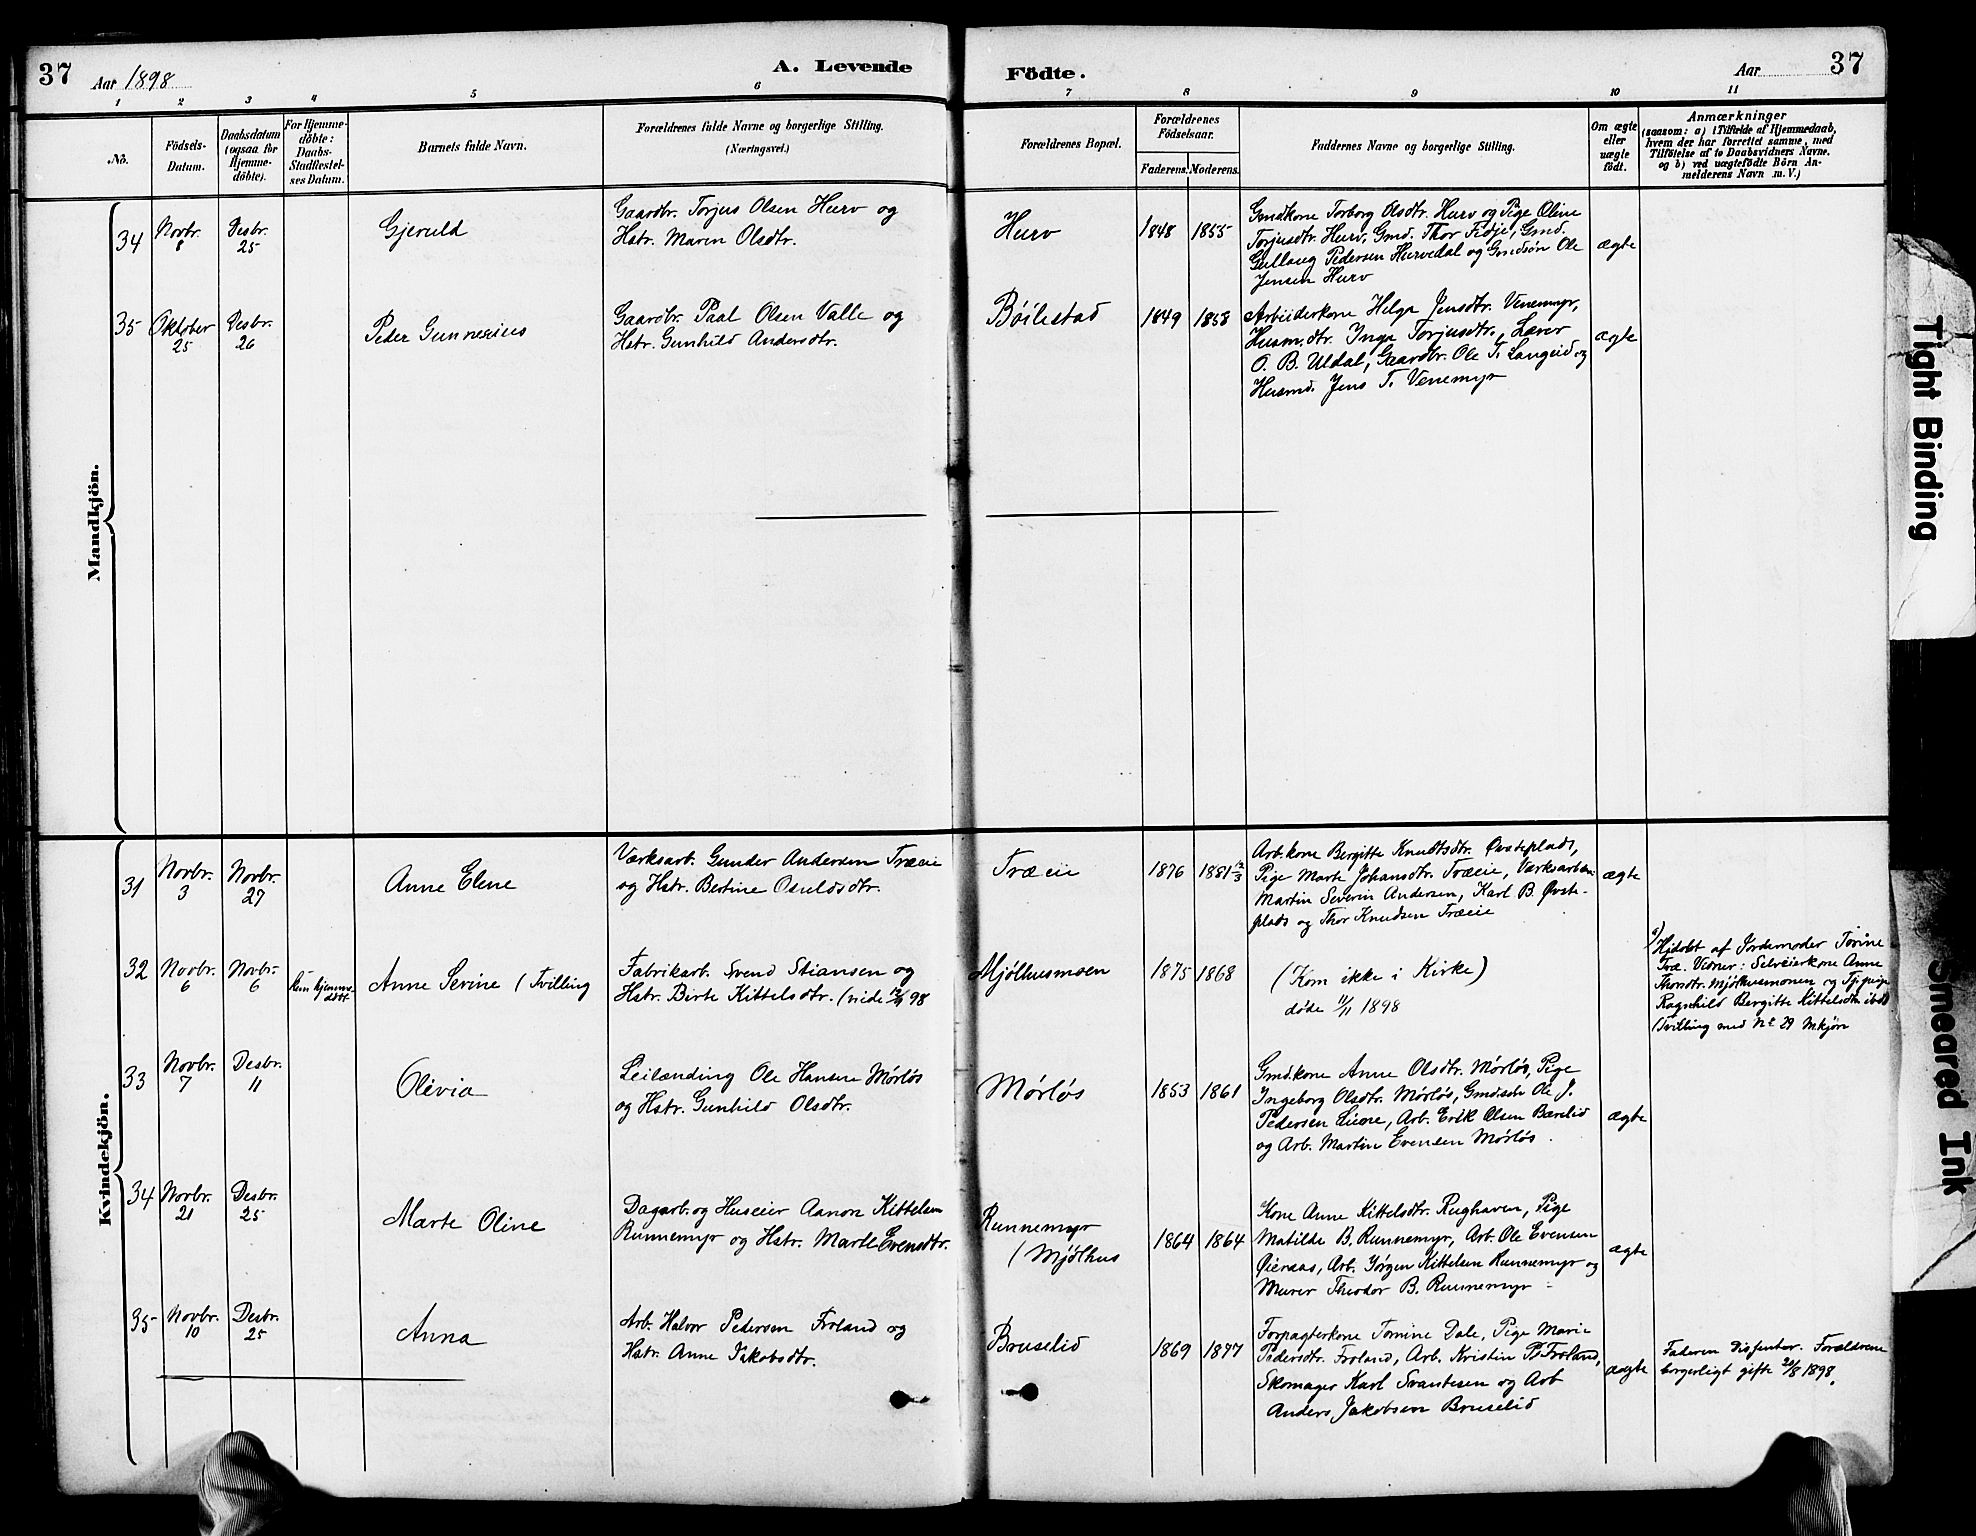 37
Aar 1898
A. Levende
Födte.
Aar
37
1 2 3 4 5 6 7 8 9 10 11
No.
Födsels-
Datum.
Daabsdatum
(ogsaa for
Hjemme-
döbte).
For Hjemme-
döbte:
Daabs-
Stadfæstel-
ses Datum.
Barnets fulde Navn.
Forældrenes fulde Navne og borgerlige Stilling.
(Næringsvei.)
Forældrenes Bopæl.
Forældrenes
Födselsaar.
Faderens. Moderens.
Faddernes Navne og borgerlige Stilling.
Om ægte
eller
uægte
födt.
Anmærkninger
(saasom: a) i Tilfælde af Hjemmedaab,
hvem der har forrettet samme, med
Tilföielse af to Daabsvidners Navne.
og b) ved uægtefödte Börn An-
melderens Navn m. V.)
Mandkjön.
34
Novbr.
8
Desbr.
25
Gjeruld
Gaardbr. Torjus Olsen Hurv og
Hstr. Maren Olsdtr.
Hurv
1848 1855
Gmdkone Torborg Olsdtr. Hurv og Pige Oline
Torjusdtr. Hurv, Gmd. Thor Fidje, Gmd.
Gullaug Pedersen Hurvedal og Gmdsøn Ole
Jensen Hurv
ægte
35
Oktober
25
Desbr.
26
Peder Gunnerius
Gaardbr. Paal Olsen Valle og
Hstr. Gunhild Andersdtr.
Bøilestad
1849 1858
Arbeiderkone Helga Jensdtr. Venemyr,
Husm.dtr. Inga Torjusdtr., Lærer
O. B. Uldal, Gaardbr. Ole T. Langeid og
Husmd. Jens T. Venemyr
ægte
Kvindekjön.
31
Novbr.
3
Novbr.
27
Anne Elene
Værksarb. Gunder Andersen Træeie
og Hstr. Bertine Osuldsdtr.
Træeie
1876 1881 12/3
Arb.kone Bergitte Knudtsdtr. Østeplads,
Pige Marte Johansdtr. Træeie, Værksarben
Martin Severin Andersen, Karl B. Øvste-
plads og Thor Knudsen Træeie
ægte
32
Novbr.
6
Novbr.
6
Kun hjemme-
døbt
Anne Serine (Tvilling
Fabrikarb. Svend Stiansen og
Hstr. Birte Kittelsdtr. (viede 12/4 98
Mjølhusmoen
1875 1868
(Kom ikke i Kirke)
døde 11/11 1898
a)
Hjdøbt af Jordemoder Torine
Træ. Vidner: Selveierkone Anne
Thorsdtr. Mjølhusmonen og Tj.pige
Ragnhild Bergitte Kittelsdtr. ibd
(Tvilling med No 29 Mkjøn
33
Novbr.
7
Desbr.
11
Olevia
Leilænding Ole Hansen Mørløs
og Hstr. Gunhild Olsdtr.
Mørløs
1853 1861
Gmd.kone Anne Olsdtr. Mørløs, Pige
Ingeborg Olsdtr. Mørløs, Gmdssøn Ole J.
Pedersen Liene, Arb. Erik Olsen Bærelid
og Arb. Martin Evensen Mørløs.
ægte
34
Novbr.
21
Desbr.
25
Marte Oline
Dagarb. og Huseier Aanon Kittelsen
Runnemyr og Hstr. Marte Evensdtr.
Runnemyr
(Mjølhus
1864 1864
Kone Anne Kittelsdtr. Rughaven, Pige
Matilde B. Runnemyr, Arb. Ole Evensen
Øieraas, Arb. Jørgen Kittelsen Runnemyr og
Murer Theodor B. Runnemyr
ægte
35
Novbr.
10
Desbr.
25
Anna
Arb. Halvor Pedersen Froland og
Hstr. Anne Jakobsdtr.
Bruselid
1869 1877
Forpagterkone Tomine Dale, Pige Marie
Pedersdtr. Froland, Arb. Kristin P. Froland,
Skomager Karl Svantesen og Arb
Anders Jakobsen Bruselid
ægte
Faderen Dissenter. Forældrene
borgerligt gifte 21/8 1898.
Tight Binding
Smeared Ink